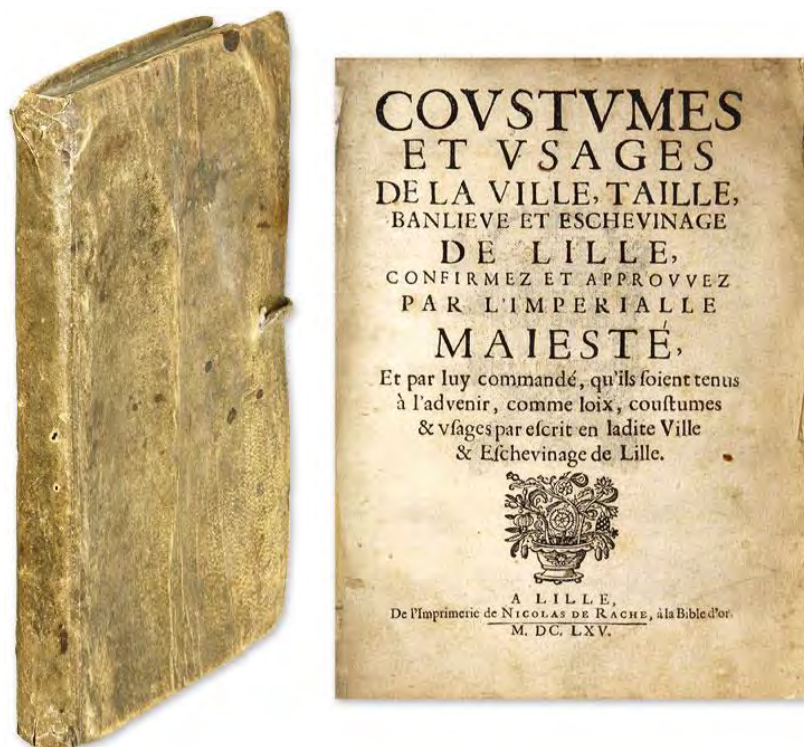 COVSTVMES
ET VSAGES
DE LA VILLE, TAILLE,
BANLIEVE ET ESCHEVINAGE
DE LILLE,
CONFIRMEZ ET APPROVVEZ
PAR L'IMPERIALLE
MAIESTÉ,
Et par luy commandé, qu'ils ſoient tenus
à l'advenir, comme loix, couſtumes
& vſages par eſcrit en ladite Ville
& Eſchevinage de Lille.
A LILLE,
De l'Imprimerie de NICOLAS DE RACHE, à la Bible d'or.
M. DC. LXV.